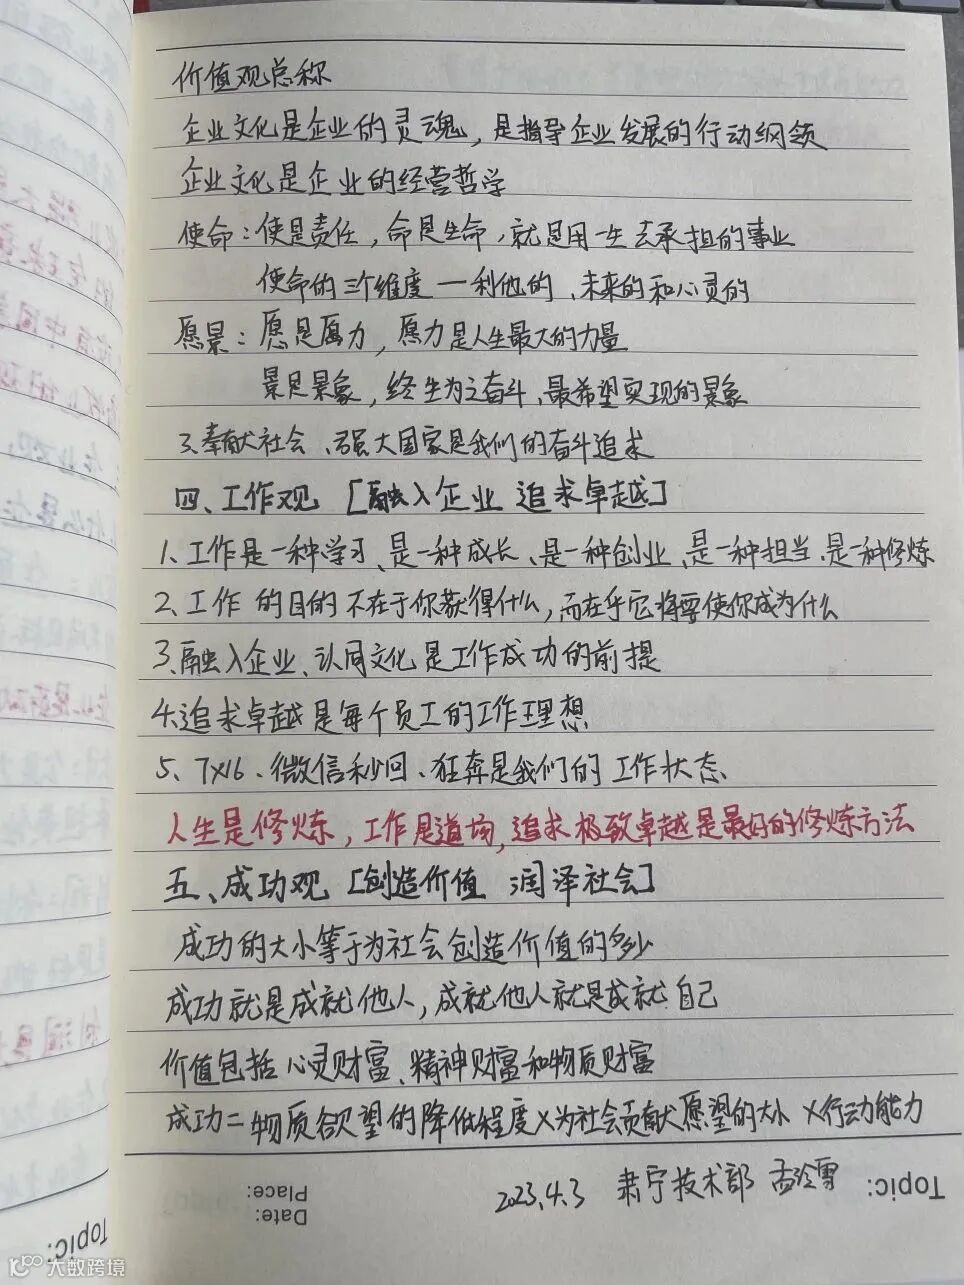 价值观总称
企业文化是企业的灵魂，是指导企业发展的行动纲领
企业文化是企业的经营哲学
使命：使是责任，命是生命，就是用一生去承担的事业
使命的三个维度—利他的、未来的和心灵的
愿景：愿是愿力，愿力是人生最大的力量
景是景象，终生为之奋斗、最希望实现的景象
3.奉献社会、强大国家是我们的奋斗追求
四、工作观 [融入企业 追求卓越]
1、工作是一种学习、是一种成长、是一种创业、是一种担当、是一种修炼
2、工作的目的不在于你获得什么，而在乎它将要使你成为什么
3.融入企业、认同文化是工作成功的前提
4.追求卓越是每个员工的工作理想
5、7×16、微信秒回、狂奔是我们的工作状态
人生是修炼，工作是道场，追求极致卓越是最好的修炼方法
五、成功观 [创造价值 润泽社会]
成功的大小等于为社会创造价值的多少
成功就是成就他人，成就他人就是成就自己
价值包括心灵财富、精神财富和物质财富
成功=物质欲望的降低程度×为社会贡献愿望的大小×行动能力
2023.4.3 肃宁技术部
Topic:
Date:
Place:
Topic:
大数跨境